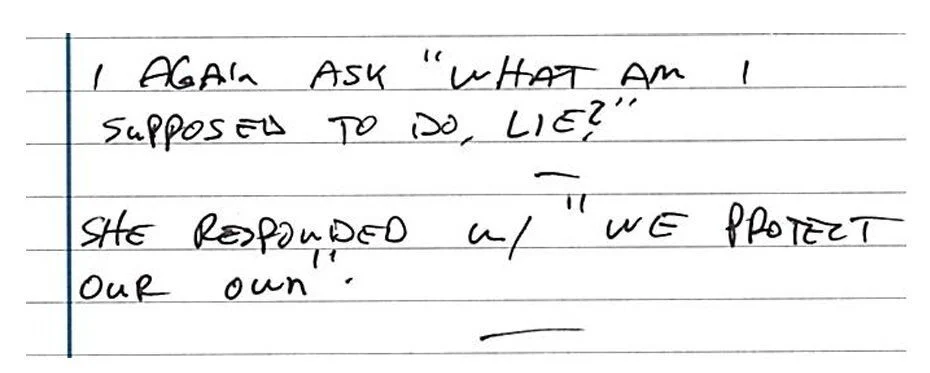 I AGAIN ASK "WHAT AM I
SUPPOSED TO DO, LIE?"
SHE RESPONDED w/ "WE PROTECT
OUR OWN".